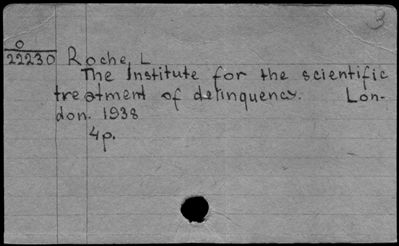 3
O
22230 Roche, L
The Institute for the scientific
treatment of delinquency. Lon-
don. 1938
4p.